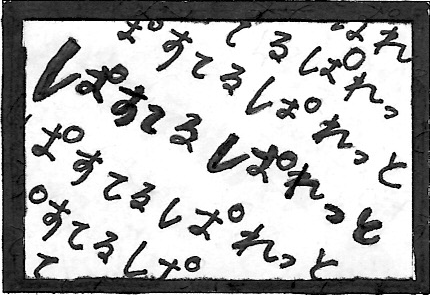 ぱれ
てるぱれっ
ぱすてるぱれっと
ぱすてるぱれっと
ぱすてるぱれっと
ぱすてるぱ
て